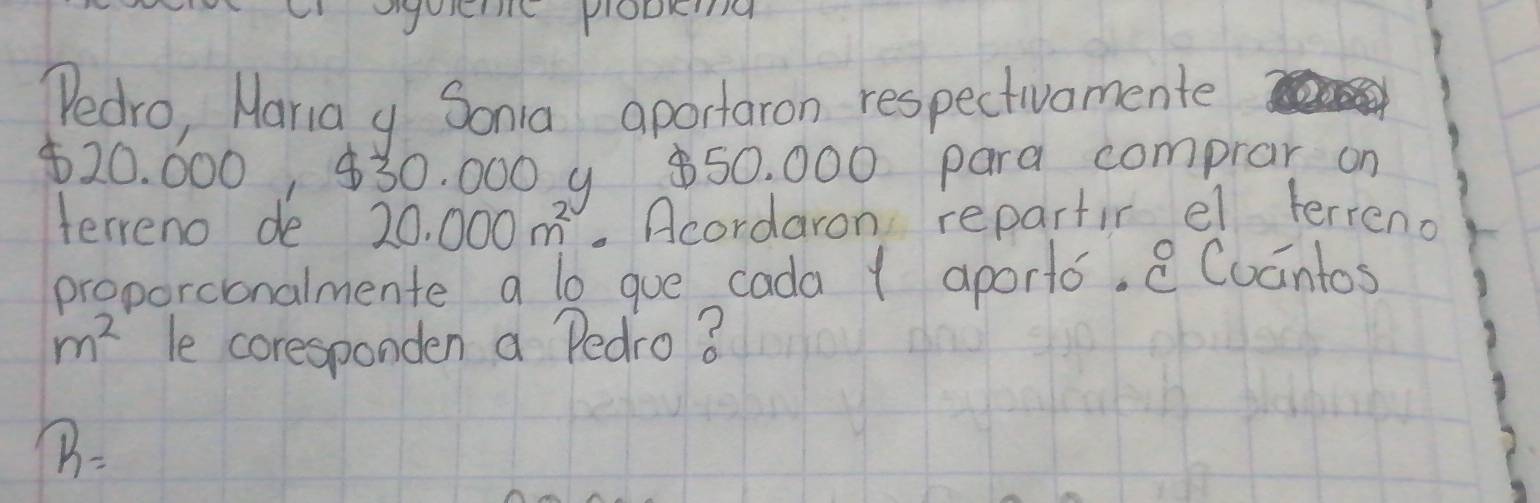 el siguiente problema
Pedro, Maria y Sonia aportaron respectivamente
$20.000, $30.000 y $50.000 para comprar un
terreno de 20.000 m². Acordaron repartir el terreno
proporcionalmente a lo que cada 1 aportó. ¿Cuántos
m² le coresponden a Pedro?
R=